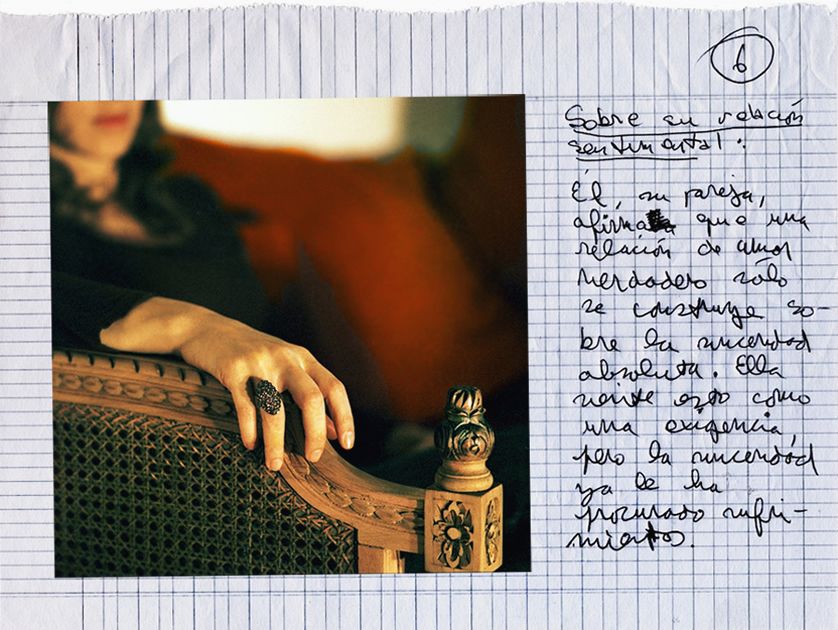 6
Sobre su relación
sentimental:
Él, su pareja,
afirma que una
relación de amor
verdadero sólo
se construye so-
bre la sinceridad
absoluta. Ella
siente esto como
una exigencia,
pero la sinceridad
ya le ha
procurado sufri-
mientos.